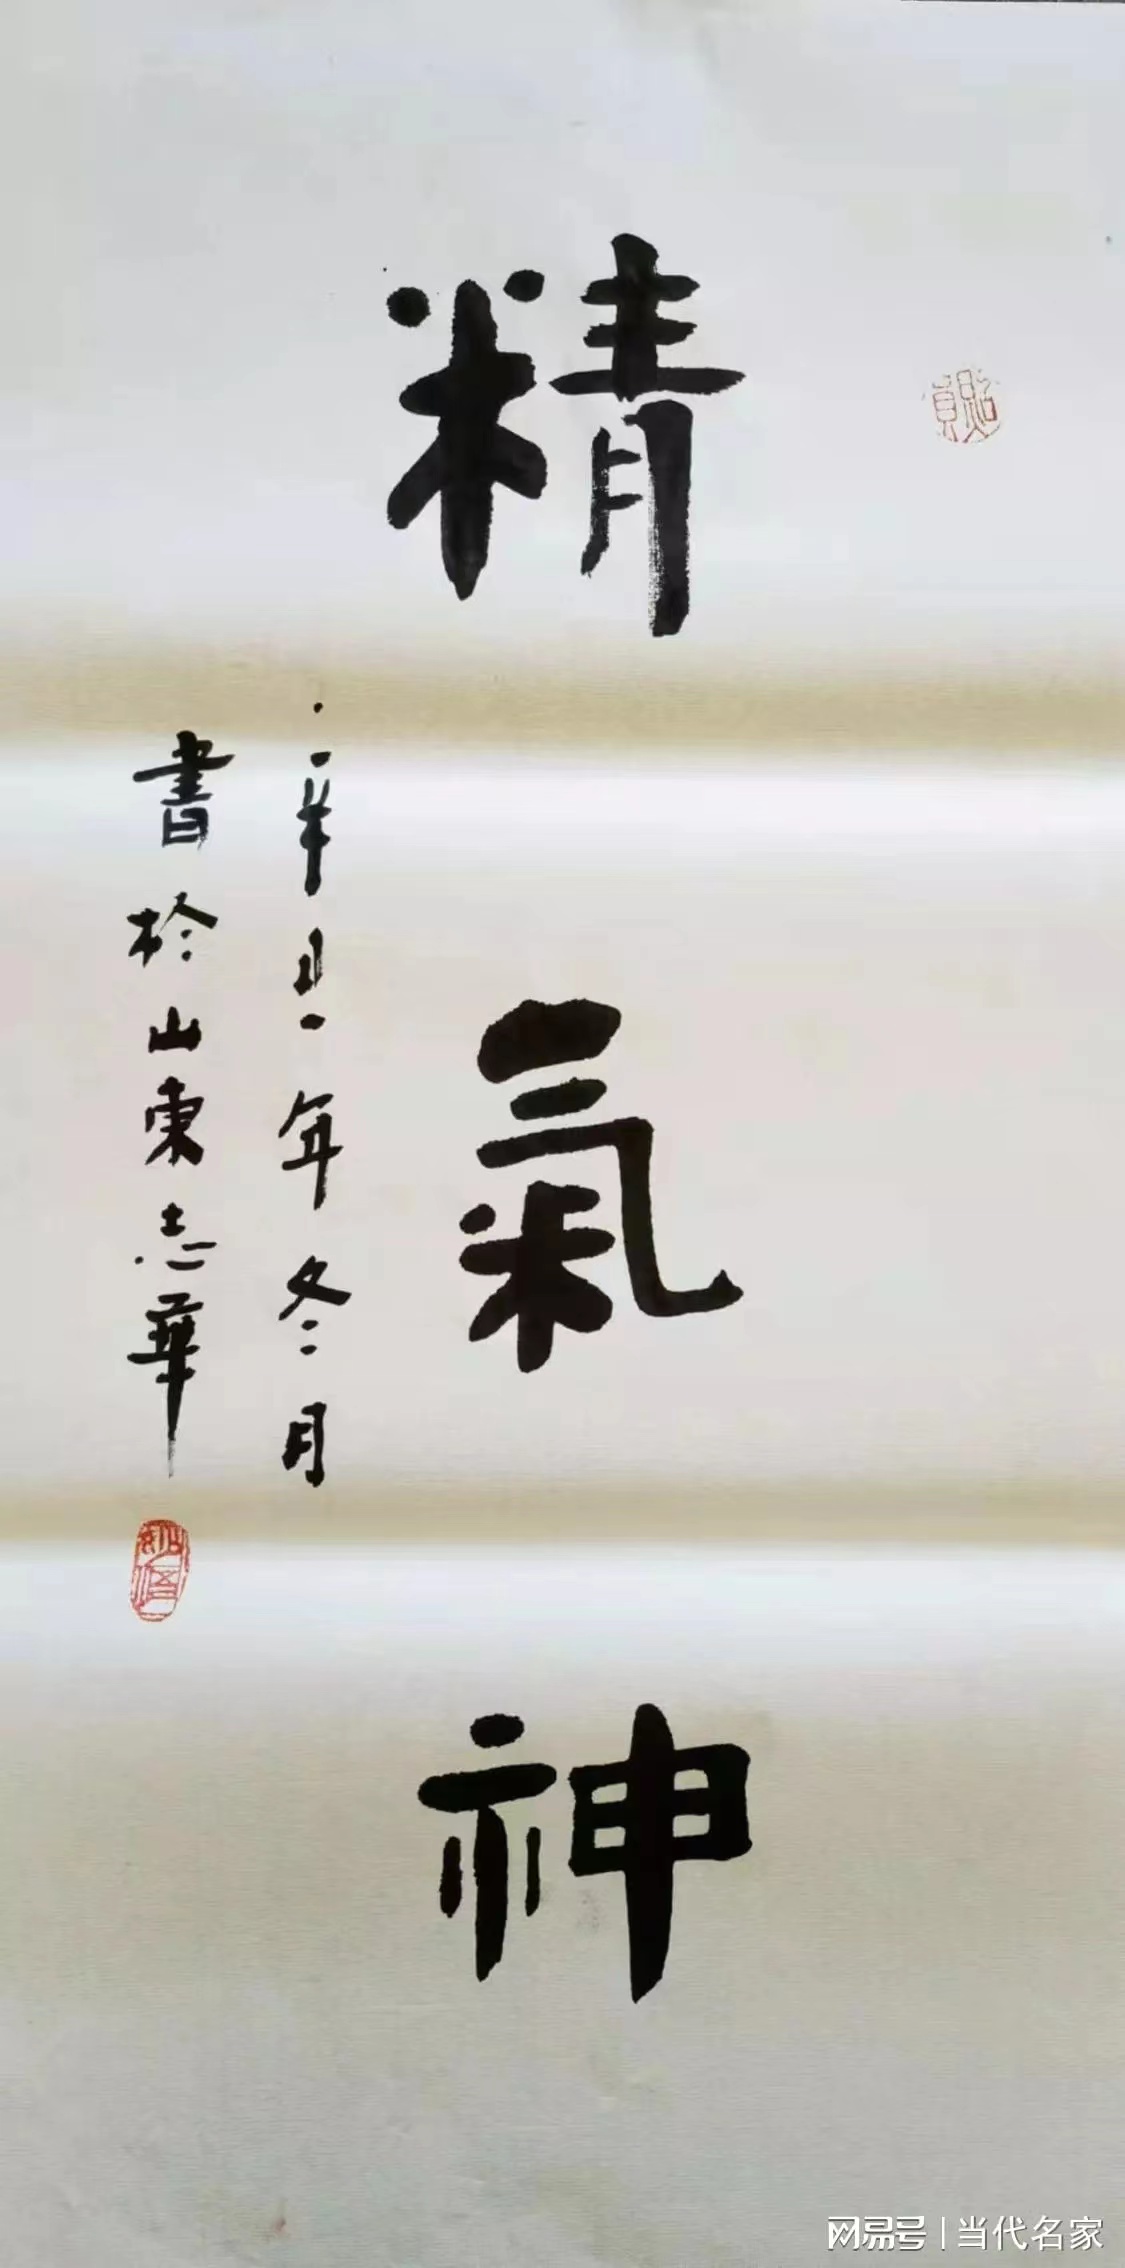 精氣神
辛丑年冬月
書於山東志華
网易号 | 当代名家